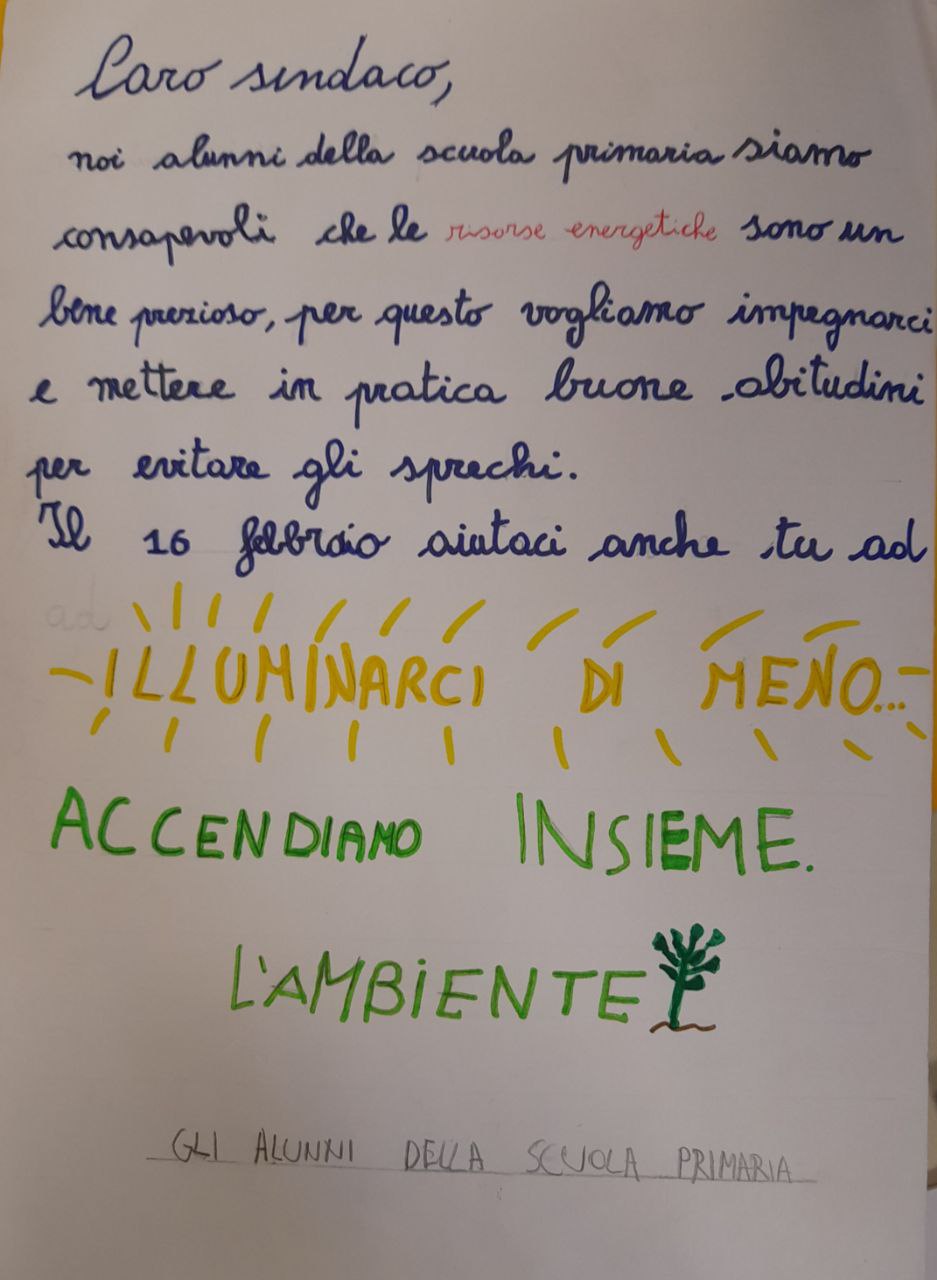 Caro sindaco,
noi alunni della scuola primaria siamo
consapevoli che le risorse energetiche sono un
bene prezioso, per questo vogliamo impegnarci
e mettere in pratica buone abitudini
per evitare gli sprechi.
Il 16 febbraio aiutaci anche tu ad
ad
ILLUMINARCI DI MENO...
ACCENDIAMO INSIEME.
L'AMBIENTE
GLI ALUNNI DELLA SCUOLA PRIMARIA